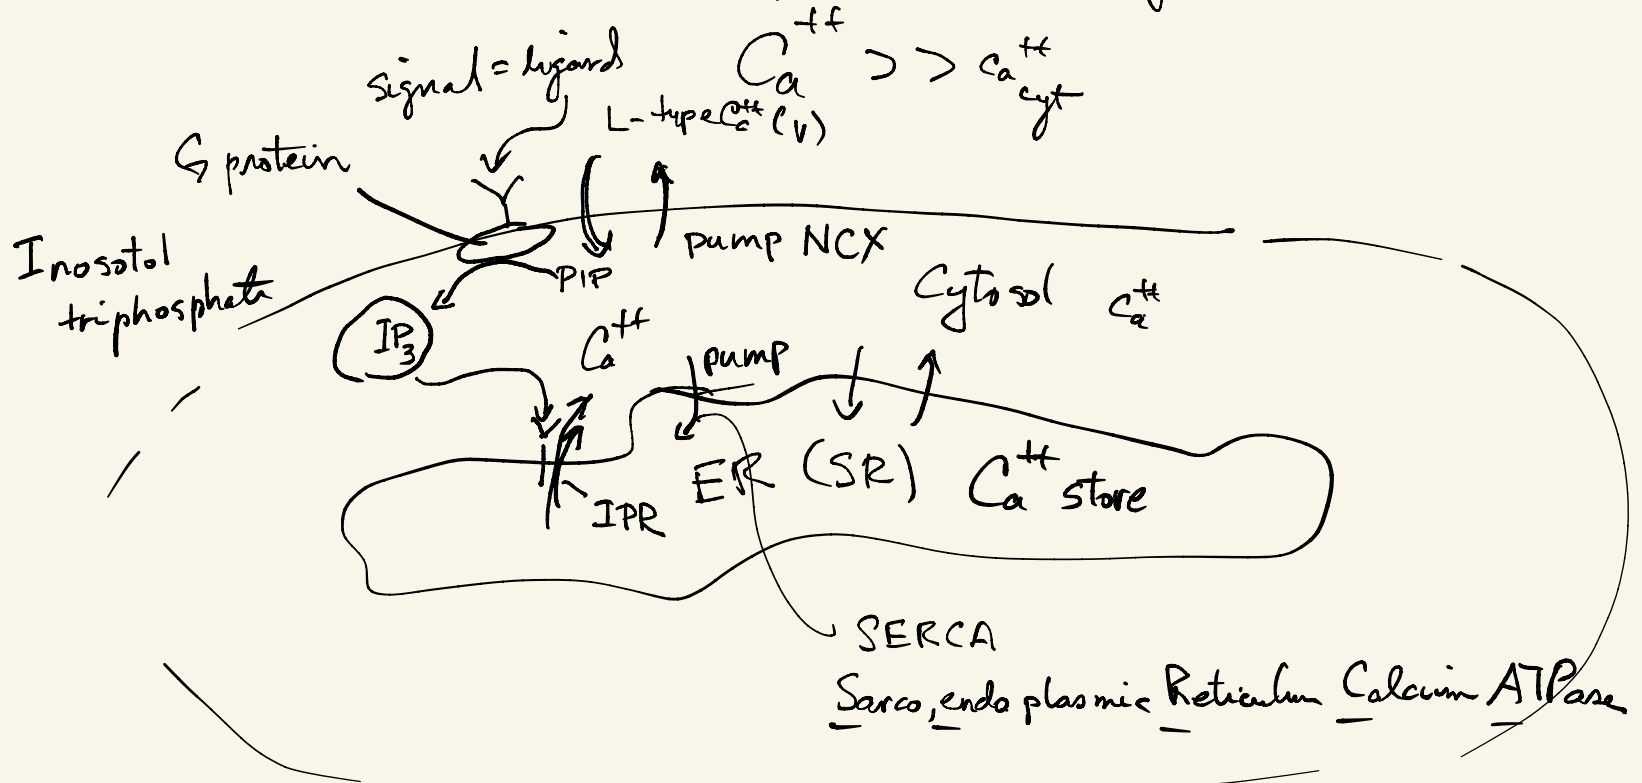 signal = ligand
Ca++ >> Ca++ cyt
L-type Ca++ (V)
G protein
pump NCX
Inosotol
triphosphate
PIP
Cytosol Ca++
IP3
Ca++
pump
ER (SR) Ca++ store
IPR
SERCA
Sarco, endo plasmic Reticulum Calcium ATPase